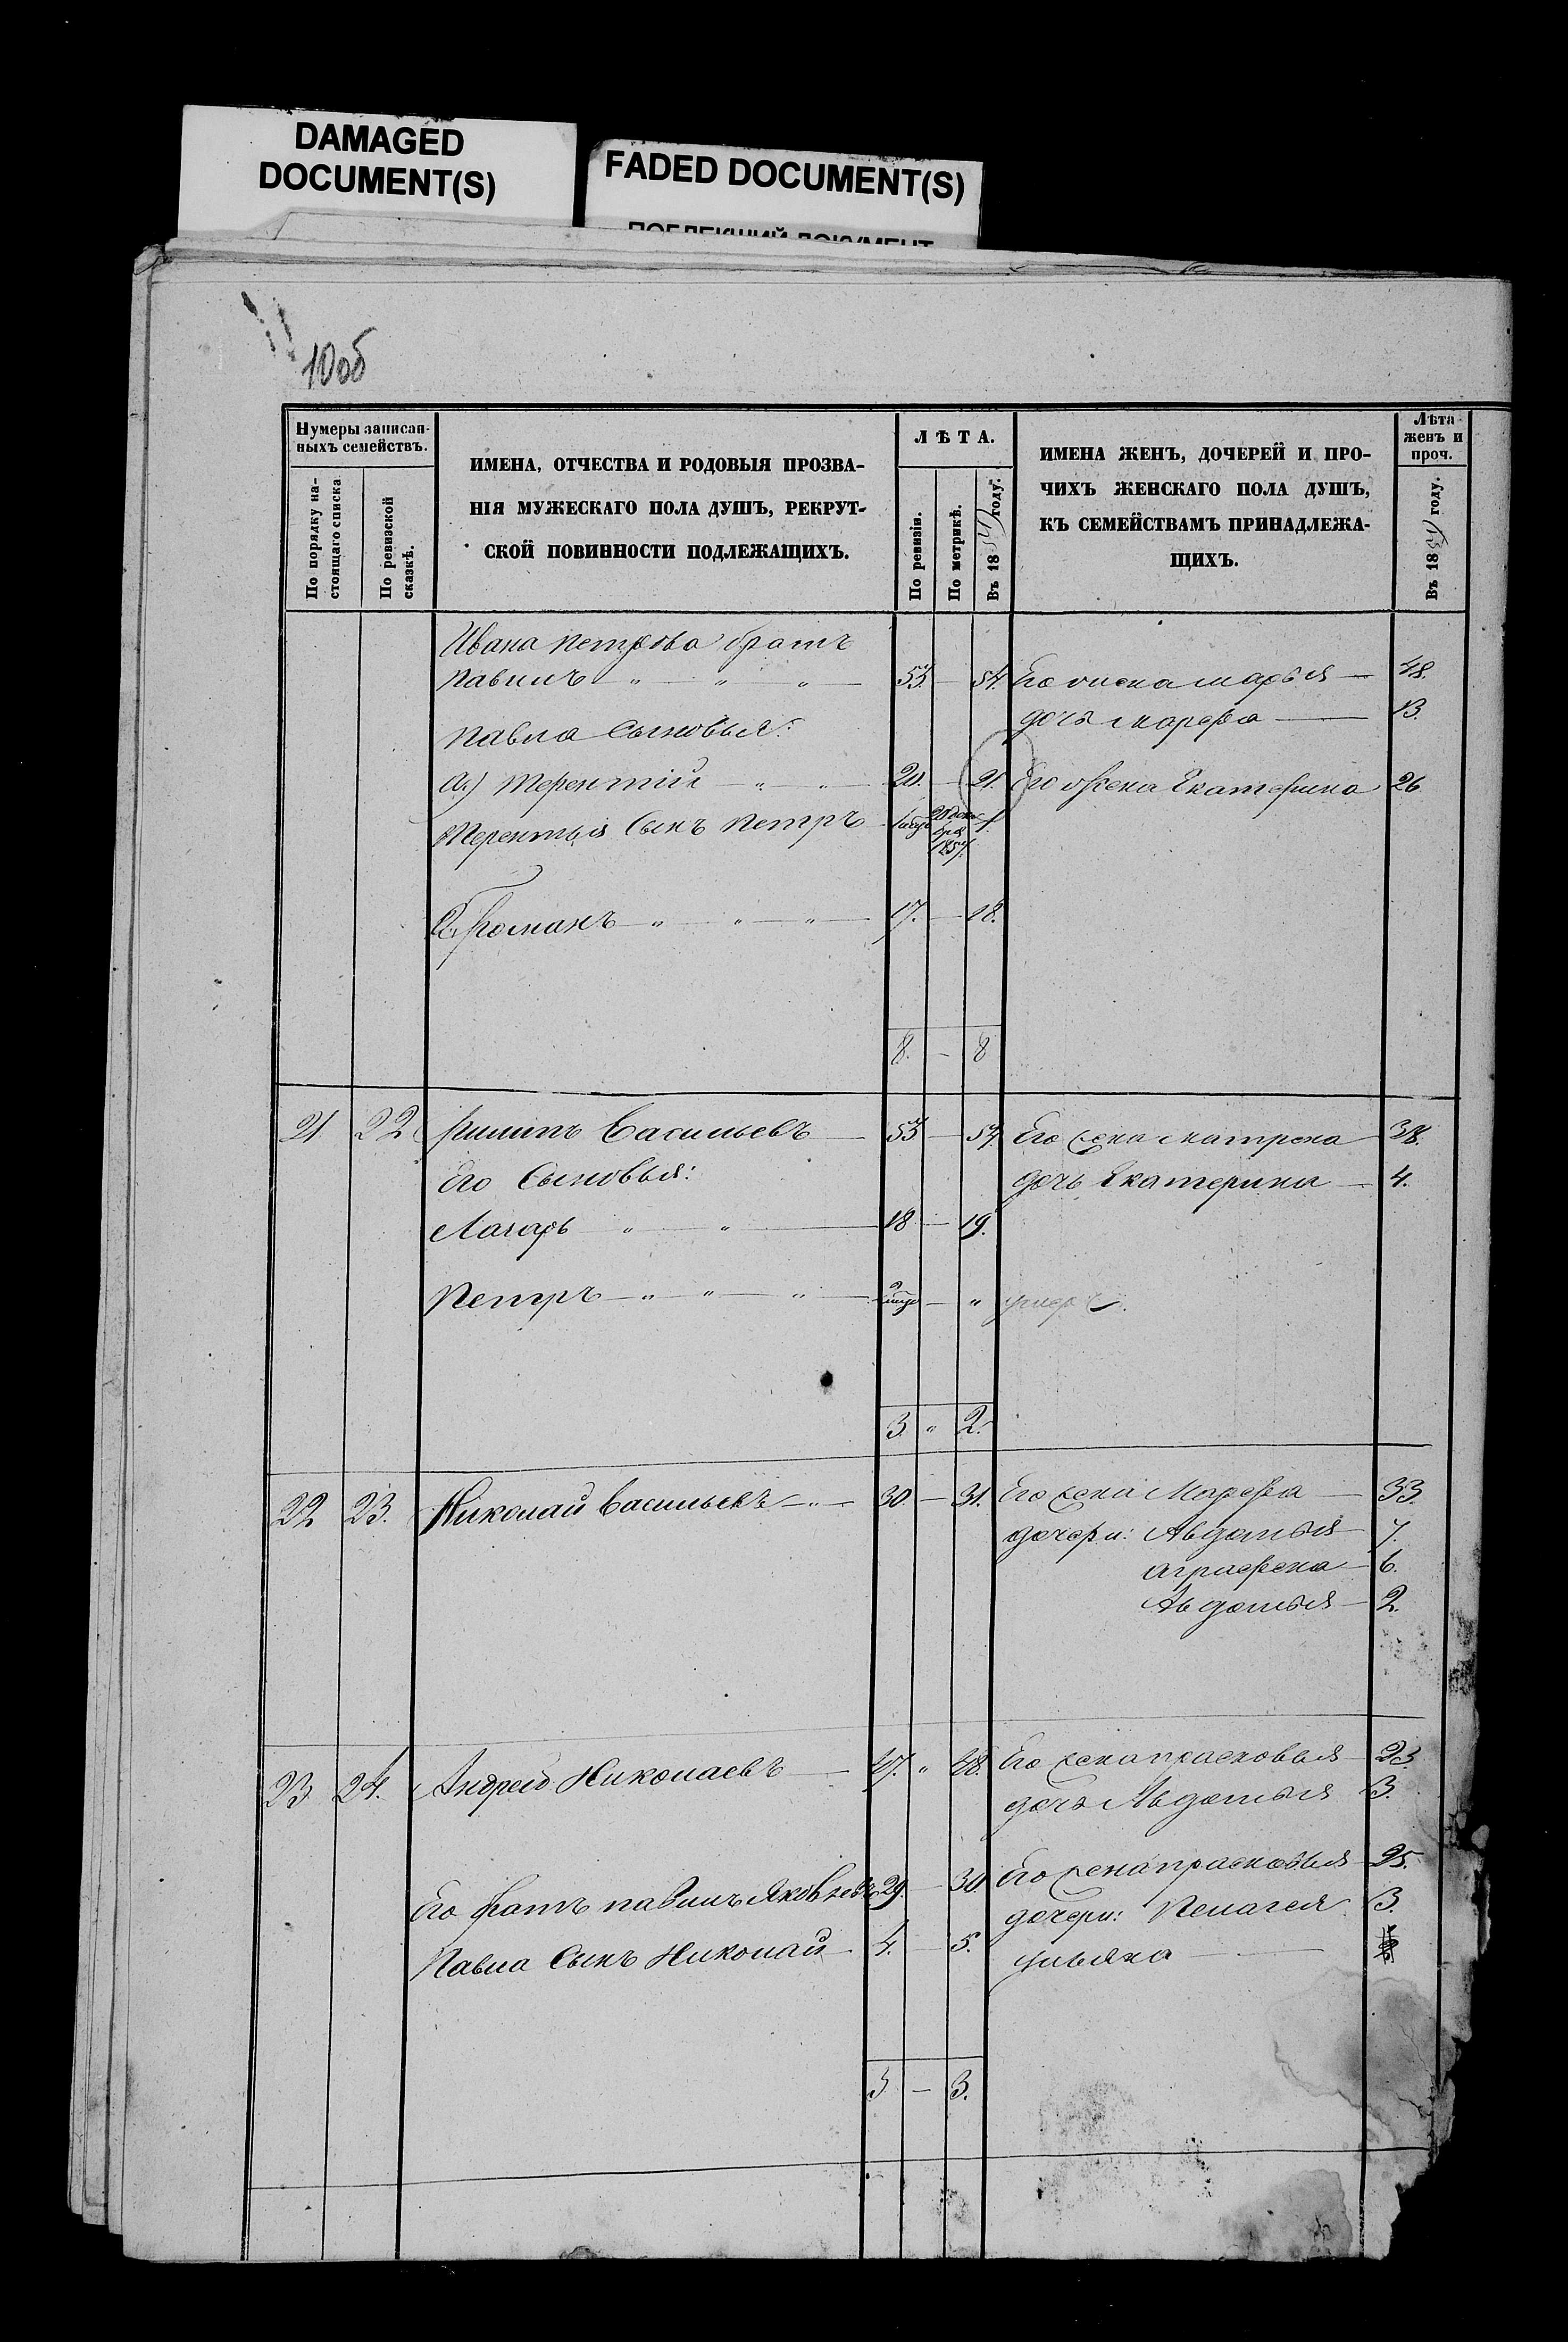 DAMAGED
DOCUMENT(S)
FADED DOCUMENT(S)
10об
Нумеры записан-
ныхъ семействъ.
По порядку на-
стоящаго списка
По ревизской
сказкѣ.
ИМЕНА, ОТЧЕСТВА И РОДОВЫЯ ПРОЗВА-
НІЯ МУЖЕСКАГО ПОЛА ДУШЪ, РЕКРУТ-
СКОЙ ПОВИННОСТИ ПОДЛЕЖАЩИХЪ.
ЛѢТА.
По ревизіи.
По метрикѣ.
Въ 18 году.
ИМЕНА ЖЕНЪ, ДОЧЕРЕЙ И ПРО-
ЧИХЪ ЖЕНСКАГО ПОЛА ДУШЪ,
КЪ СЕМЕЙСТВАМЪ ПРИНАДЛЕЖА-
ЩИХЪ.
Лѣта
женъ и
проч.
Въ 18 году.
Ивана Петрова братъ
Павилъ — " — " — " — 53. — 54. Его жена Марья — 48.
Павла Сыновья: дочь Марфа — 13.
а) Терентій — " — " — 20. — 21. Его жена Екатерина 26
Терентья Сынъ Петръ 1857. 1.
Романъ — " — " — " — 17. — 18.
8. — 8
21 22 Филипъ Васильевъ — 53 — 54. Его жена Матрена — 38.
Его Сыновья: дочь Екатерина — 4.
Лазарь — " — " — 18 — 19.
Петръ — " — " — " — " умеръ.
3. " 2.
22 23. Николай Васильевъ — " — 30 — 31. Его жена Марфа — 33
дочери: Авдотья — 7.
Аграфена — 6.
Авдотья — 2.
23 24. Андрей Николаевъ — 47. " 48. Его жена прасковья — 23.
дочь Авдотья 3.
Его братъ павилъ Яковлевъ 29. — 30. Его жена прасковья — 25.
дочери: Пелагея 3.
Павла Сынъ Николай — 4. — 5. ульяна —
3 — 3.